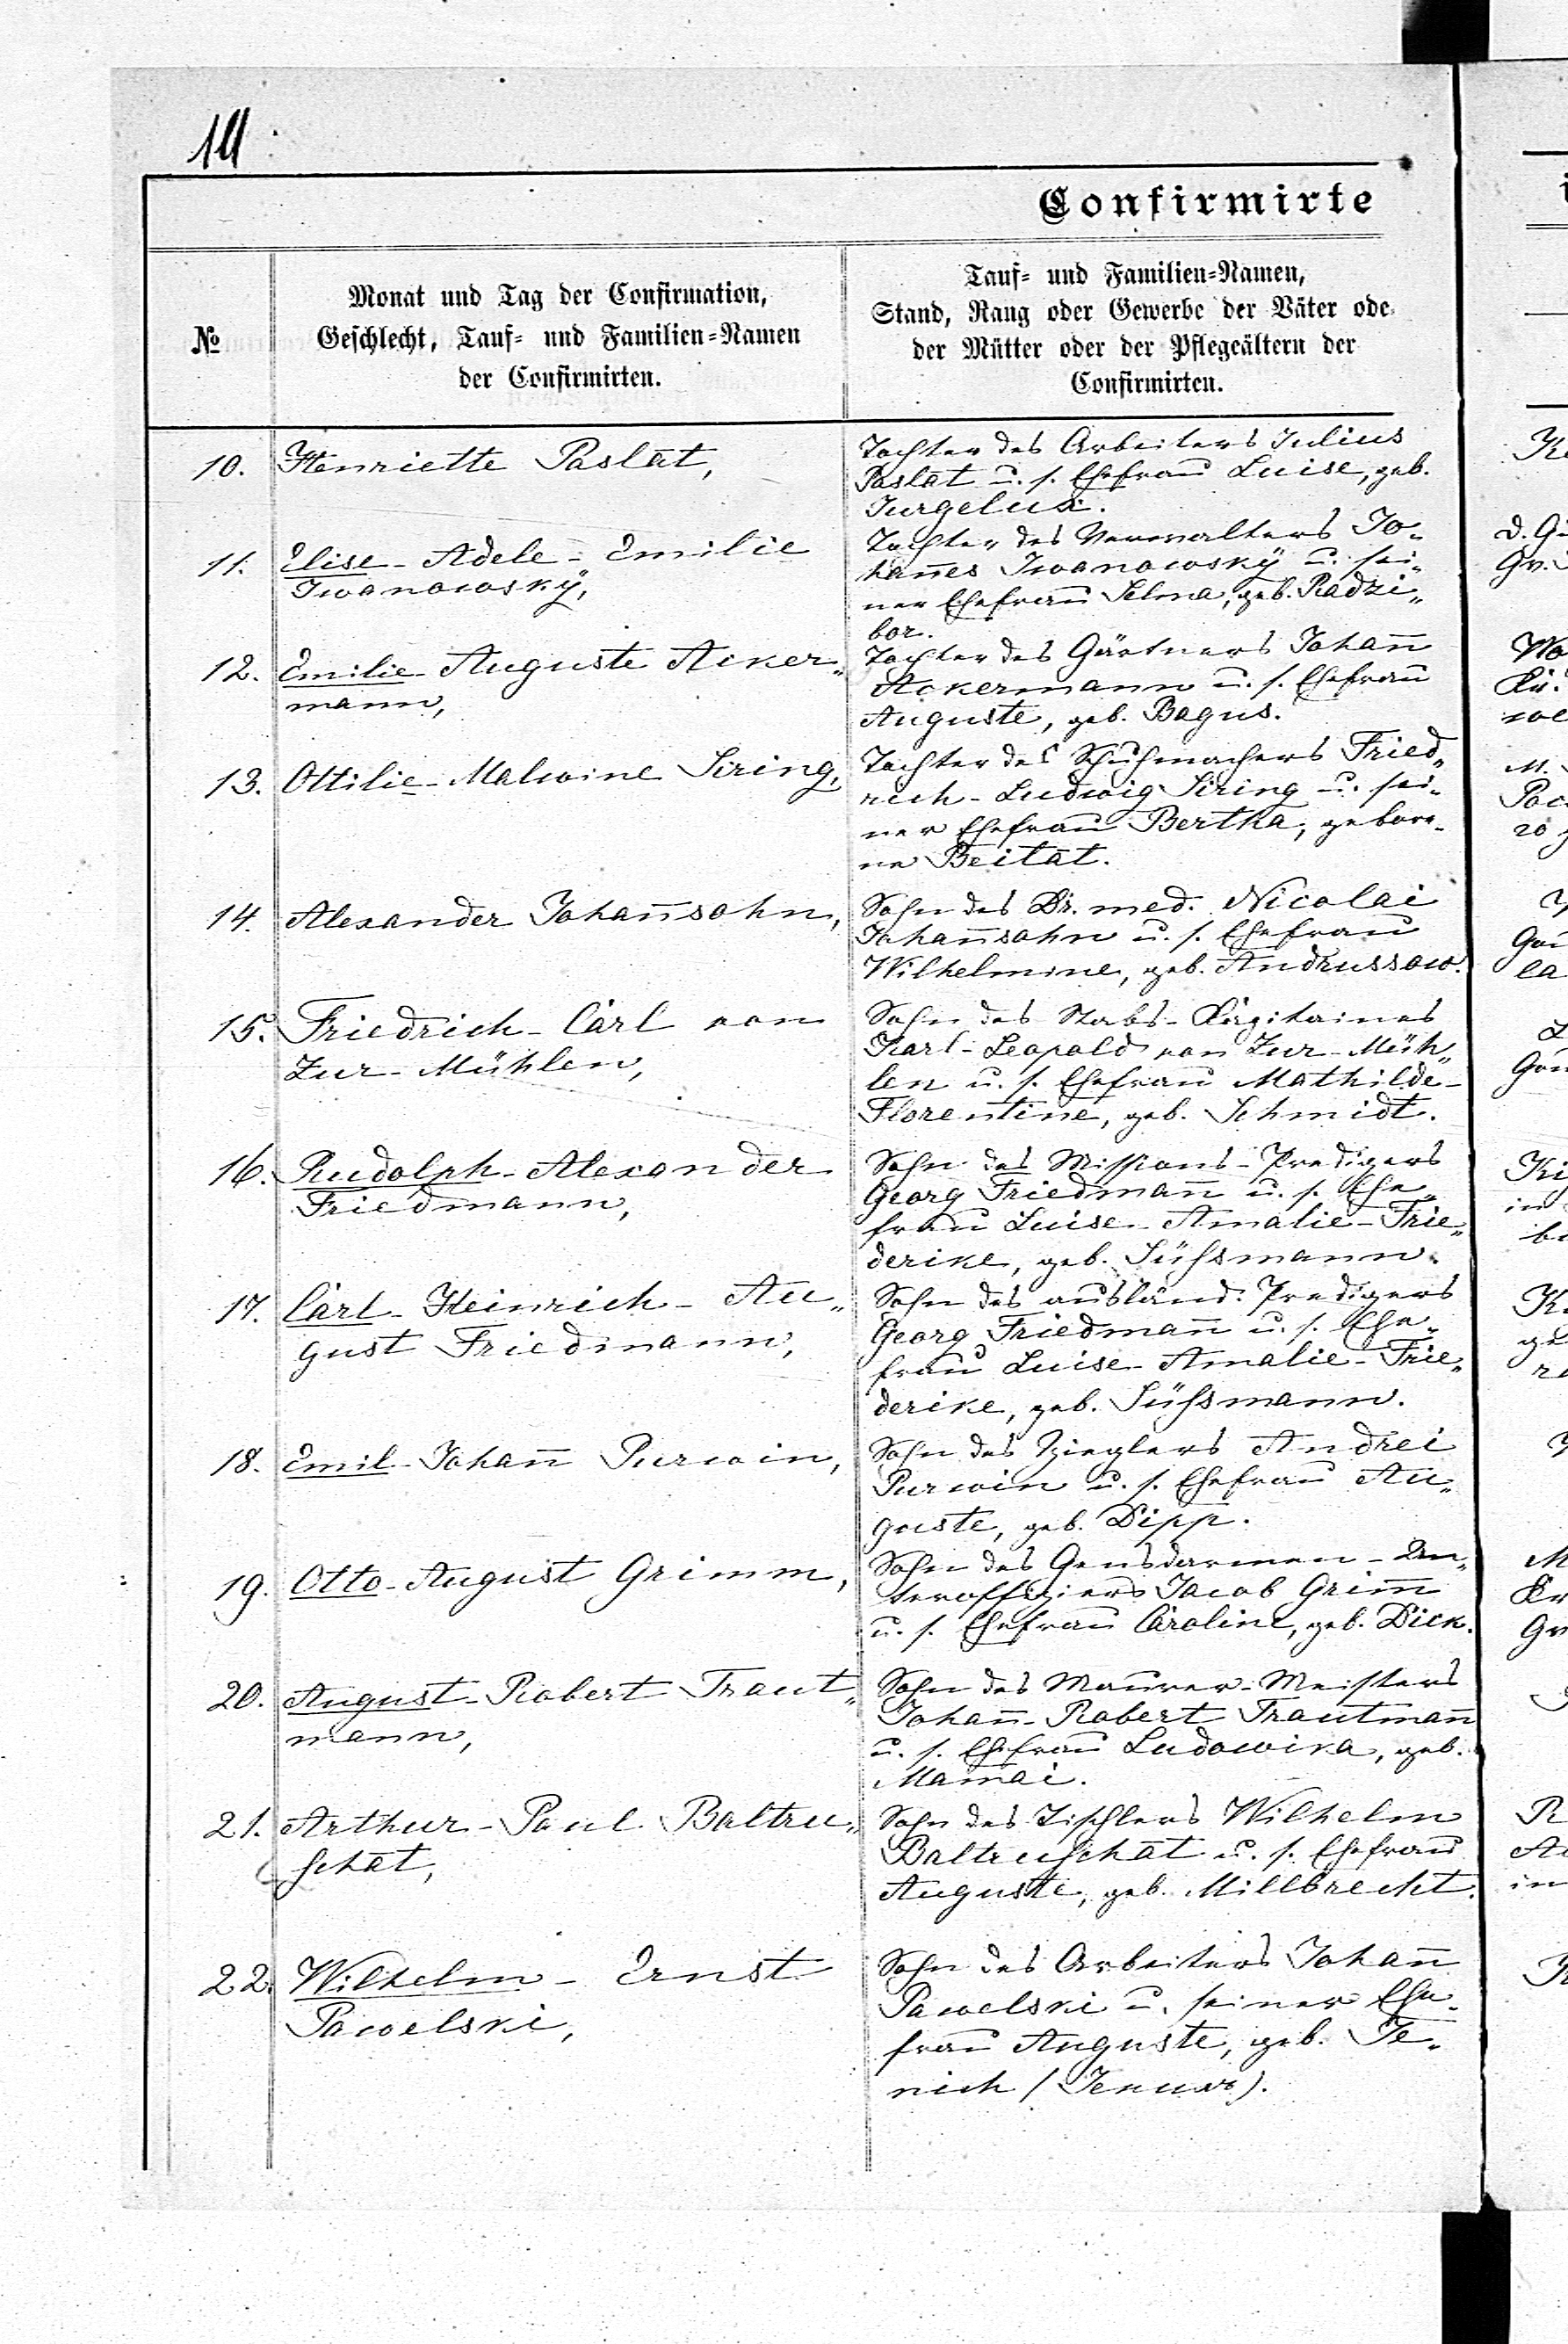 Confirmirte
№
Monat und Tag der Confirmation,
Geschlecht, Tauf- und Familien-Namen
der Confirmirten.
Tauf- und Familien-Namen,
Stand, Rang oder Gewerbe der Väter ode
der Mütter oder der Pflegeältern der
Confirmirten.
10. Henriette Paslat,
Tochter des Arbeiters Julius
Paslat u. s. Ehefrau Luise, geb.
11. Elise-Adele-Emilie
Iwanowsky,
Tochter des Verwalters Jo-
han̅es Iwanowsky u. sei-
ner Ehefrau Selma, geb. Radzi„
bor.
12. Emilie-Auguste Acker„
mann,
Tochter des Gärtners Johan̅
Ackermann u. s. Ehefrau
Auguste, geb. Bagus.
13. Ottilie-Malwine Siring,
Tochter des Schuhmachers Fried„
rich-Ludwig Siring u. sei-
ner Ehefrau Bertha, gebore-
ne Beitat.
14. Alexander Johan̅sohn,
Sohn des Dr. med. Nicolai
Johan̅sohn u. s. Ehefrau
Wilhelmine, geb. Andrussow.
15. Friedrich-Carl von
Zur-Mühlen,
Sohn des Stabs-Kapitaines
Karl-Leopold von Zur-Müh„
len u. s. Ehefrau Mathilde-
Florentine, geb. Schmidt.
16. Rudolph-Alexander
Friedmann,
Sohn des Missions-Predigers
Georg Friedman̅ u. s. Ehe„
frau Luise-Amalie-Frie„
derike, geb. Süssmann.
17. Carl-Heinrich-Au„
gust Friedmann,
Sohn des ausländ. Predigers
Georg Friedman̅ u. s. Ehe„
frau Luise-Amalie-Frie„
derike, geb. Süssmann.
18. Emil-Johan̅ Purwin,
Sohn des Zieglers Andrei
Purwin u. s. Ehefrau Au„
guste, geb. Dipp.
19. Otto-August Grimm,
Sohn des Gensdarmen-Un„
teroffiziers Jacob Grim̅
u. s. Ehefrau Caroline, geb. Dick.
20. August-Robert Traut„
mann,
Sohn des Maurer-Meisters
Johan̅-Robert Trautman̅
u. s. Ehefrau Ludowika, geb.
Mamai.
21. Arthur-Paul Baltru„
schat,
Sohn des Tischlers Wilhelm
Baltruschat u. s. Ehefrau
Auguste, geb. Millbrecht.
22. Wilhelm-Ernst
Pawelski,
Sohn des Arbeiters Johan̅
Pawelski u. seiner Ehe„
frau Auguste, geb. Je„
nich